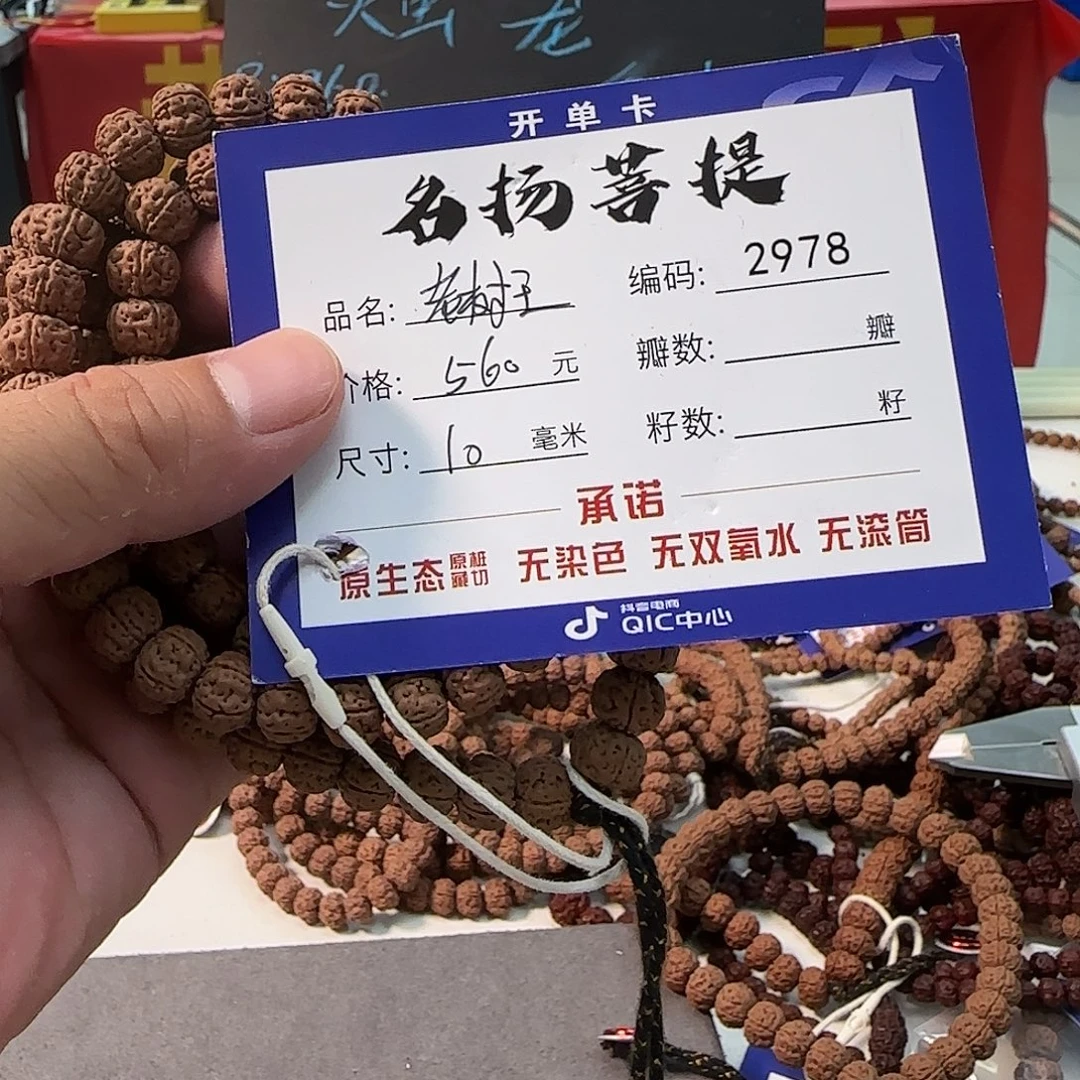 火 龙
开单卡
名扬菩提
品名: 老树王 编码: 2978
价格: 560 元 瓣数: 瓣
尺寸: 10 毫米 籽数: 籽
承诺
原生态 原桩藏切 无染色 无双氧水 无滚筒
抖音电商
QIC中心